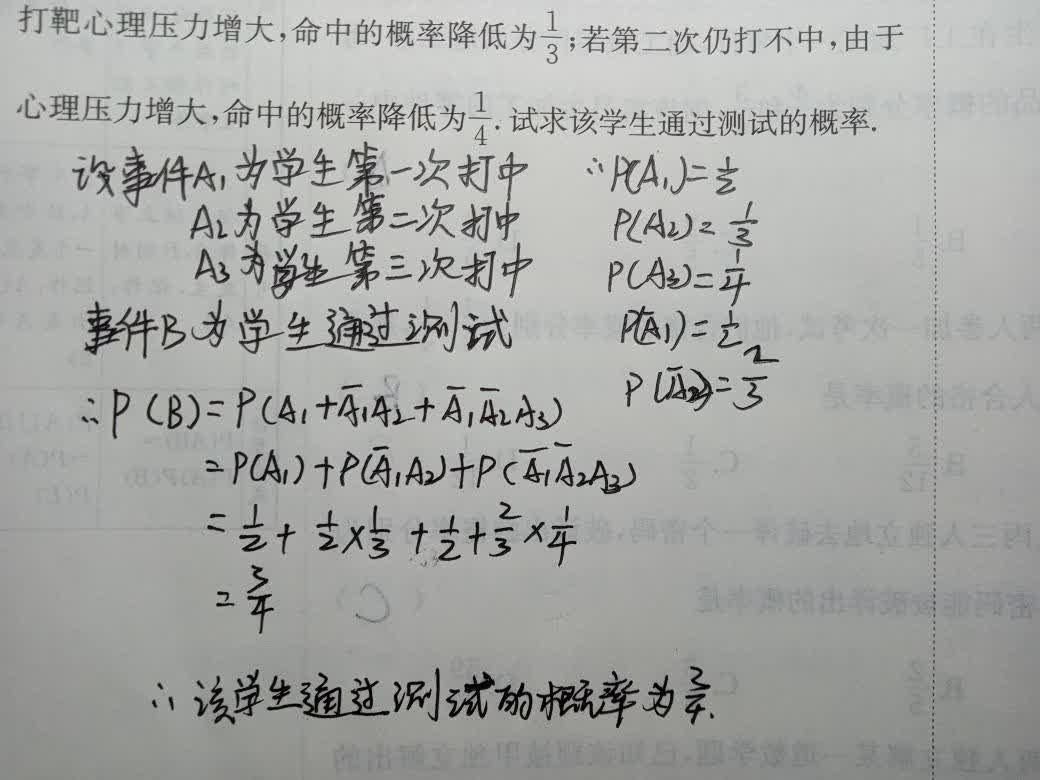 打靶心理压力增大,命中的概率降低为1/3;若第二次仍打不中,由于
心理压力增大,命中的概率降低为1/4.试求该学生通过测试的概率.
设事件A₁为学生第一次打中 ∵P(A₁)=1/2
A₂为学生第二次打中 P(A₂)=1/3
A₃为学生第三次打中 P(A₃)=1/4
事件B为学生通过测试 P(A̅₁)=1/2
P(A̅₂)=2/3
∴P(B)=P(A₁+A̅₁A₂+A̅₁A̅₂A₃)
=P(A₁)+P(A̅₁A₂)+P(A̅₁A̅₂A₃)
=1/2+1/2×1/3+1/2+2/3×1/4
=3/4
∴该学生通过测试的概率为3/4.